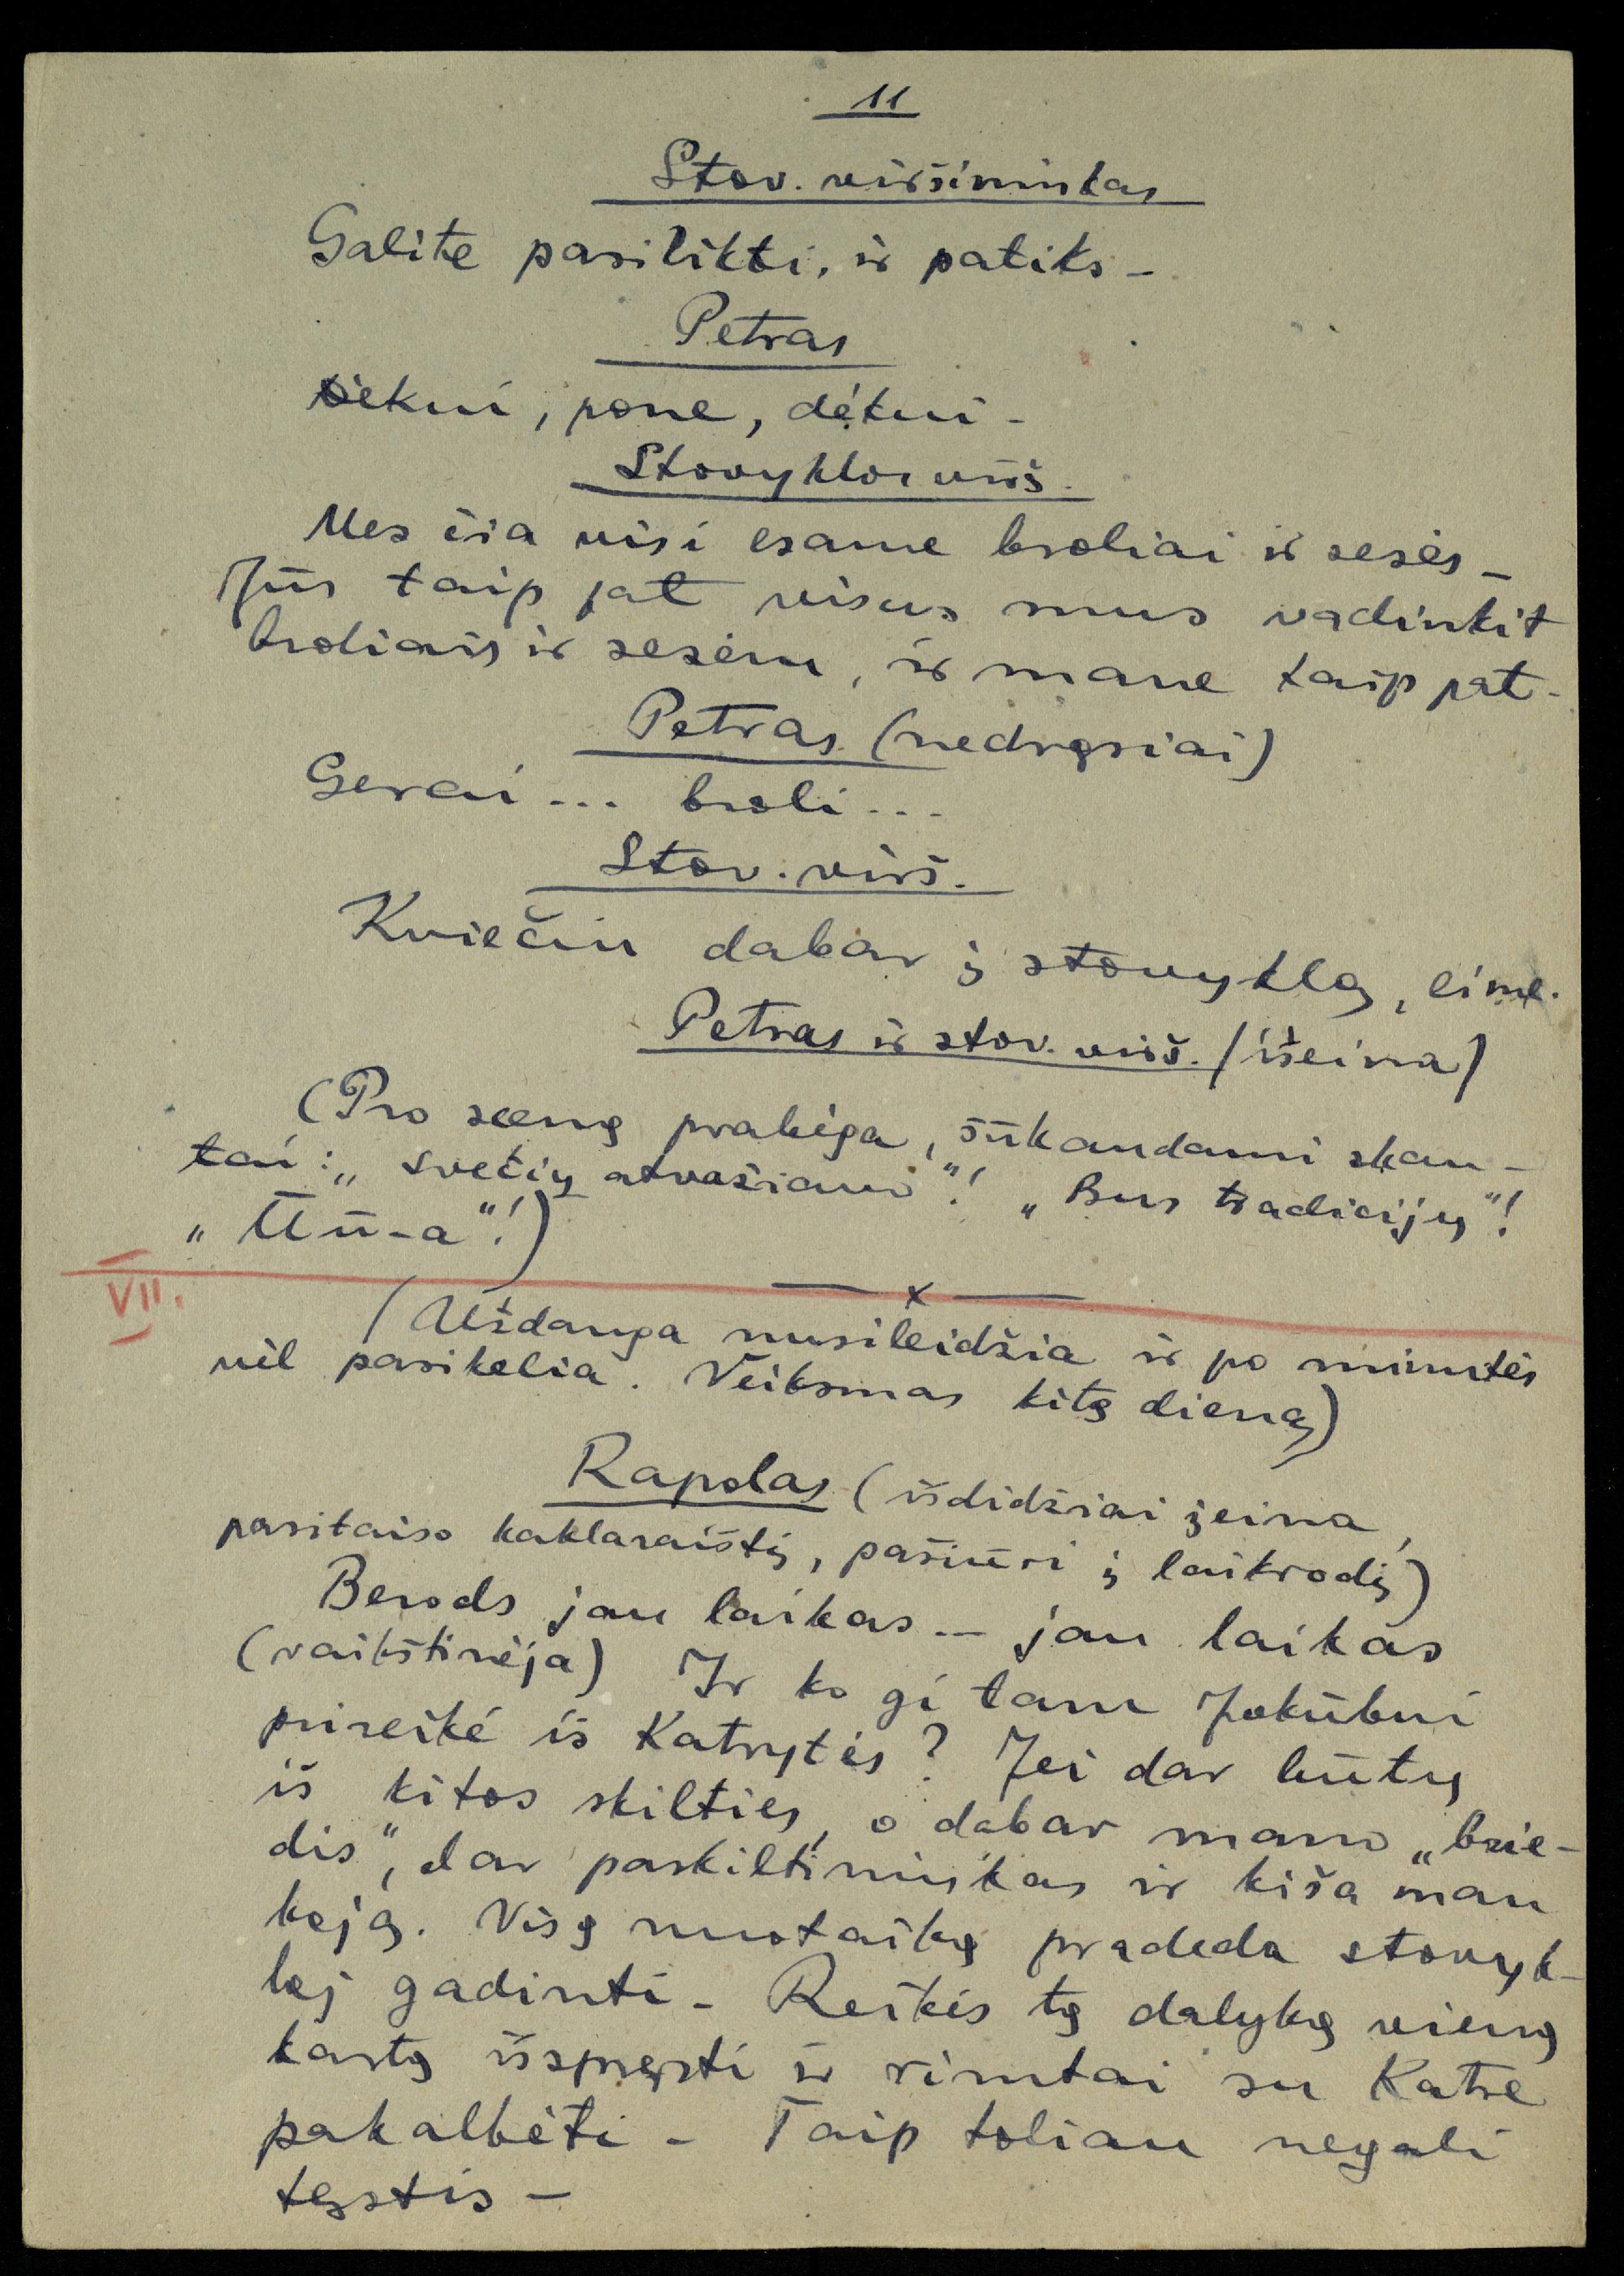 11
Stov. viršininkas
Galite pasilikti, ir patiks –
Petras
pone, dėkui –
Stovyklos virš.
Mes čia visi esame broliai ir sesės –
Jūs taip pat visus mus vadinkit
broliais ir sesėm, ir mane taip pat –
Petras (nedrąsiai)
Gerai... broli...
Stov. virš.
Kviečiu dabar į stovyklą, eime.
Petras ir stov. virš. (išeina)
(Pro sceną prabėga, šūkaudami skau-
tai: „Svečių atvažiavo"! „Bus tradicijų"!
„Ūū-a"!)
x
VII.
(Uždanga nusileidžia ir po minutės
vėl pasikelia. Veiksmas kitą dieną)
Rapolas (išdidžiai įeina,
pasitaiso kaklaraištį, pažiūri į laikrodį)
Berods jau laikas – jau laikas
(vaikštinėja) Ir ko gi tam Jokūbui
prireikė iš Katrytės? Jei dar būtų
iš kitos skilties, o dabar mano „brie-
dis", dar paskiltininkas ir kiša man
koją. Visą nuotaiką pradeda stovyk-
loj gadinti – Reikės tą dalyką vieną
kartą išspręsti ir rimtai su Katre
pakalbėti – Taip toliau negali
tęstis –